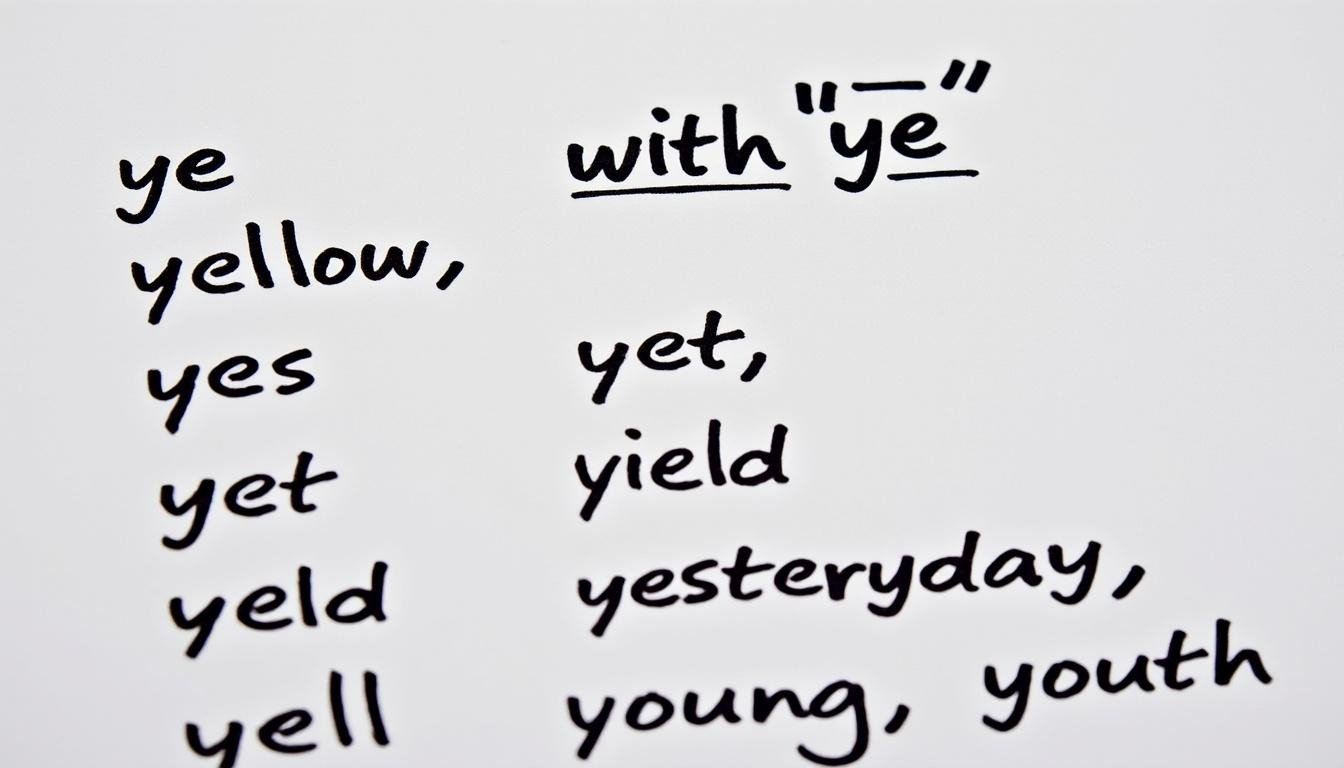 with "ye"
ye
yellow,
yes
yet
yeld
yell
yet,
yield
yesteryday,
young, youth